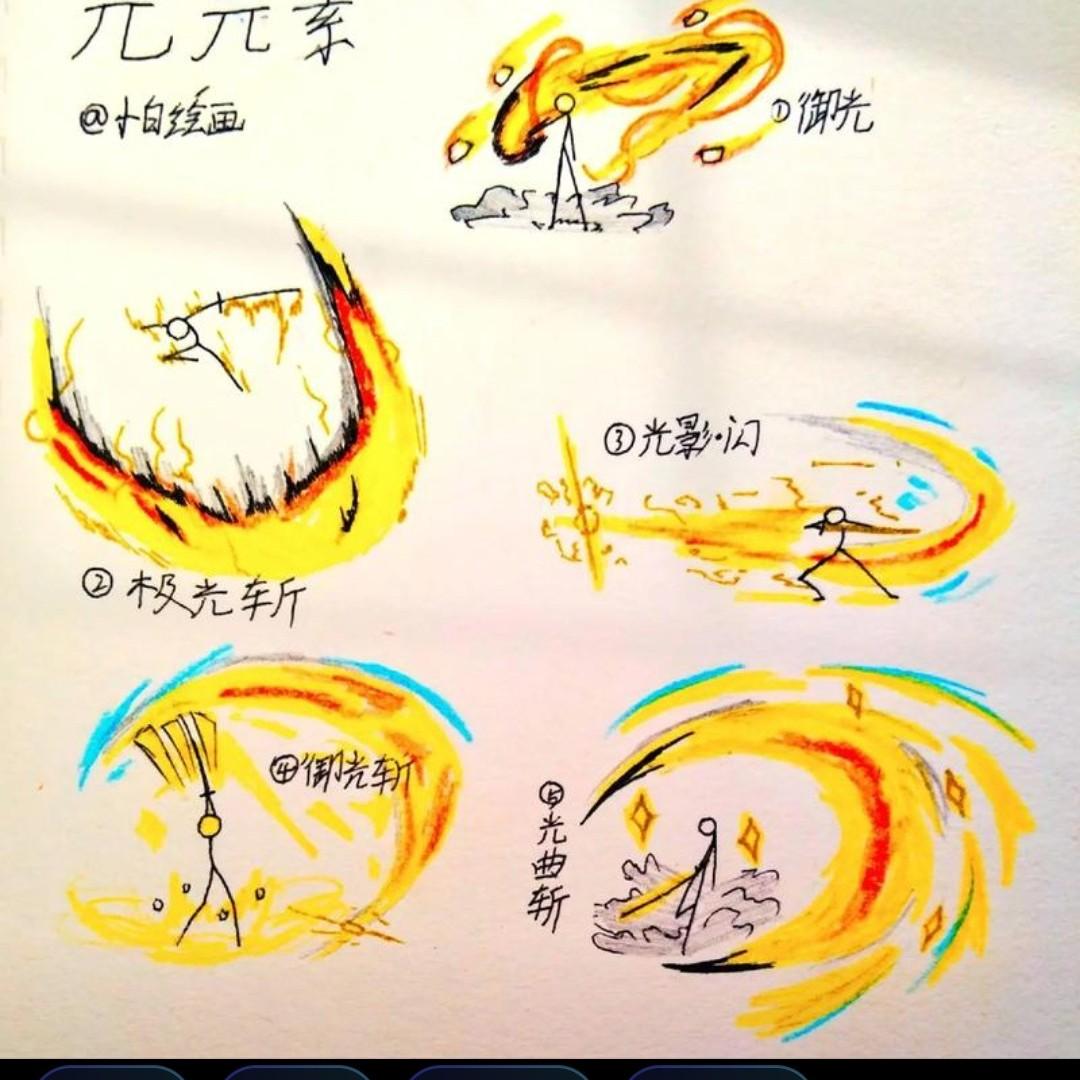 @小白绘画
①御光
③光影·闪
②极光斩
④御光斩
⑤光曲斩